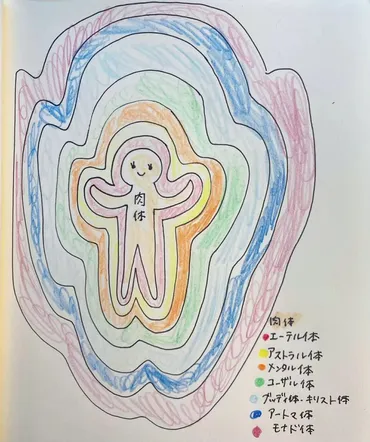 肉体
肉体
エーテル体
アストラル体
メンタル体
コーザル体
ブッディ体・キリスト体
アートマ体
モナド体